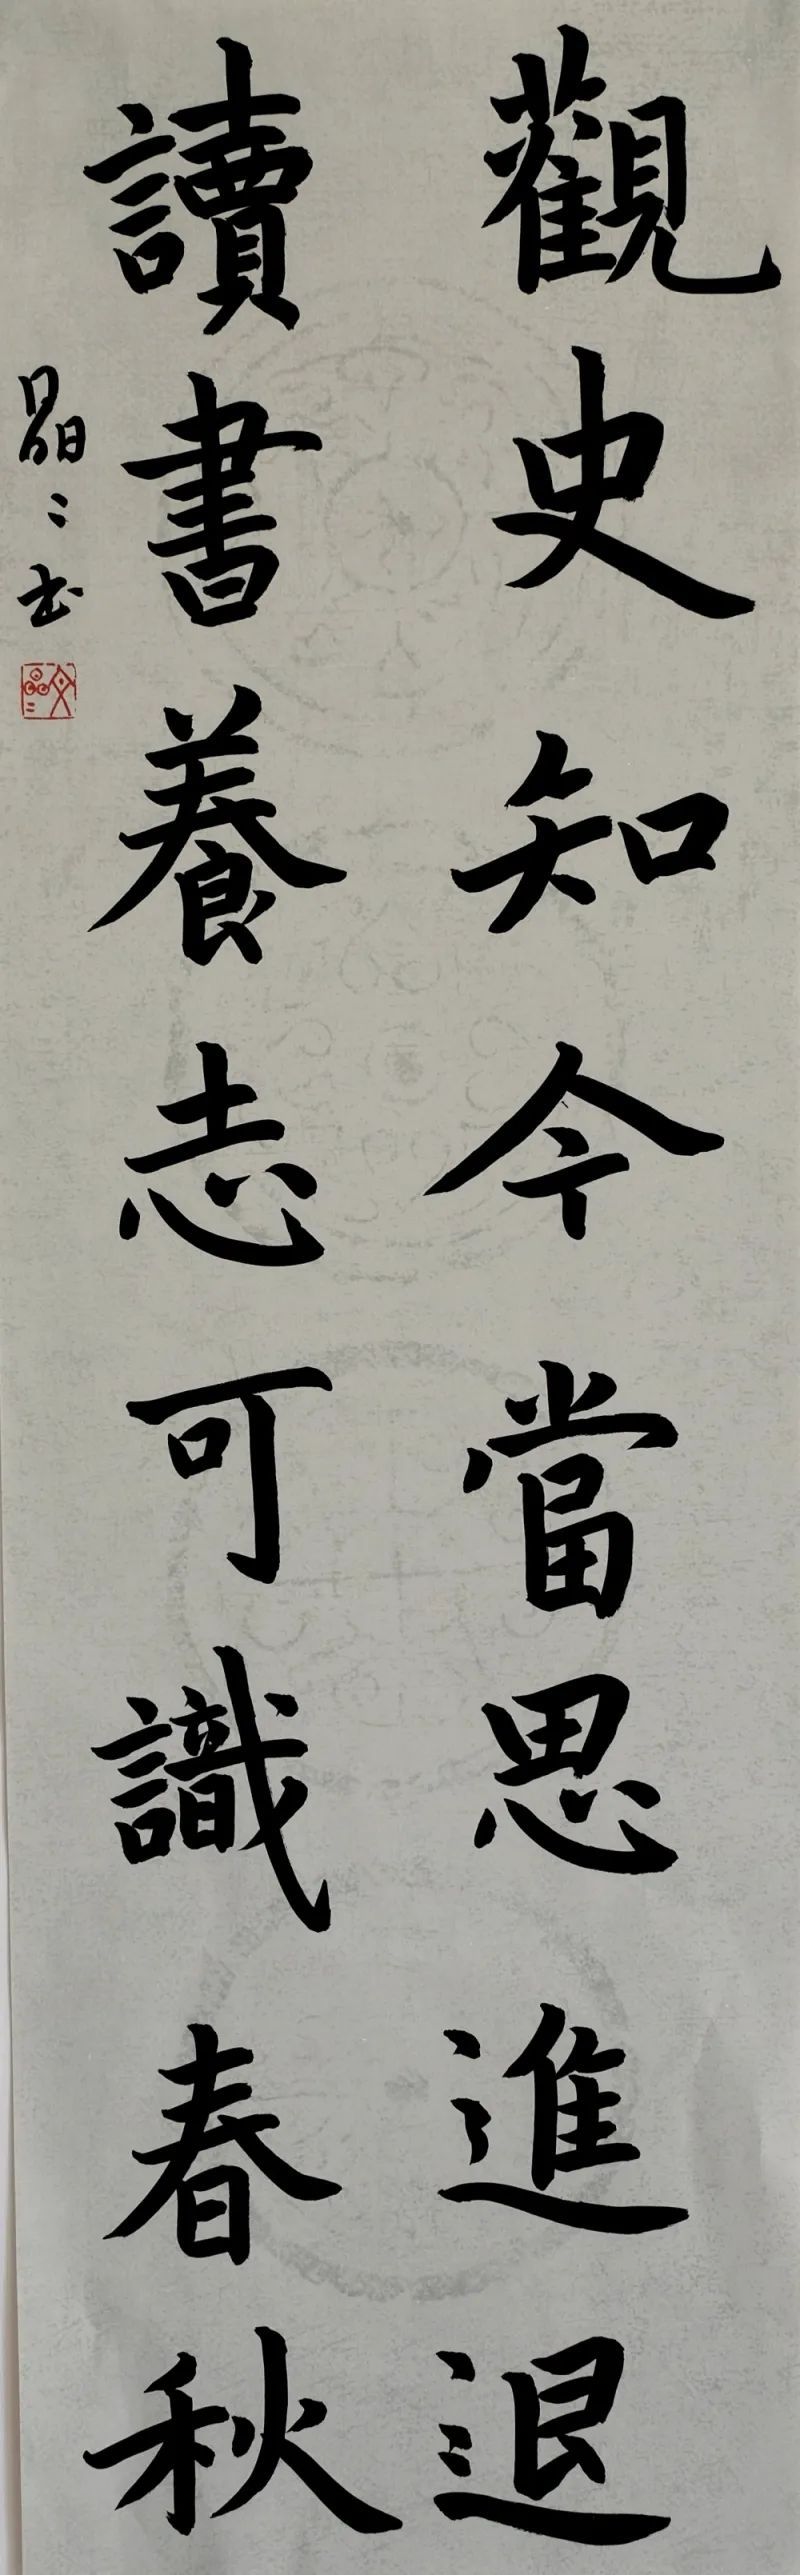 觀史知今當思進退
讀書養志可識春秋
晶〻书